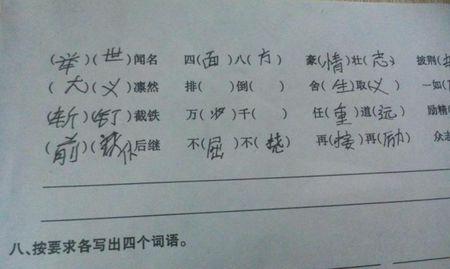 (举)(世)闻名 四(面)八(方) 豪(情)壮(志) 披荆(
(大)(义)凛然 排( )倒( ) 舍(生)取(义) 一如(
(斩)(钉)截铁 万(水)千( ) 任(重)道(远) 励精(
(前)(仆)后继 不(屈)不(挠) 再(接)再(励) 众志
八、按要求各写出四个词语。